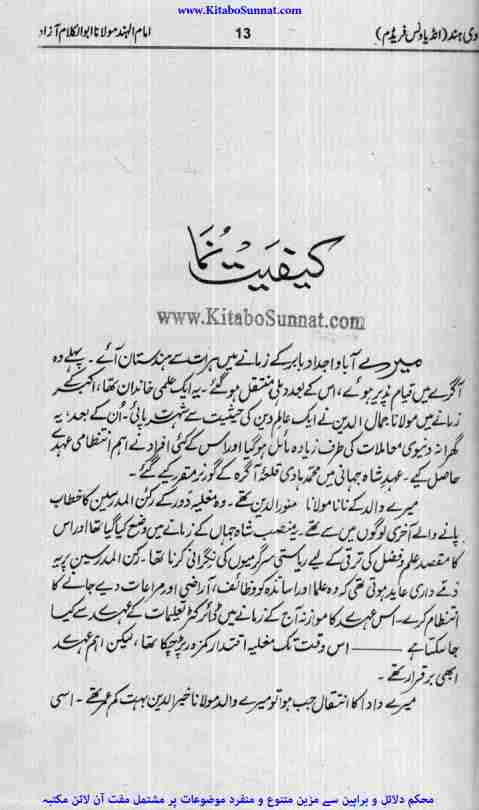 www.KitaboSunnat.com
دی ہند (انڈیا ونس فریڈم) 13 امام الہند مولانا ابوالکلام آزاد
کیفیت نُما
www.KitaboSunnat.com
میرے آباو اجداد بابر کے زمانے میں ہرات سے ہندستان آئے۔ پہلے وہ
آگرے میں قیام پذیر ہوئے، اس کے بعد دہلی منتقل ہو گئے۔ یہ ایک علمی خاندان تھا، اکبر کے
زمانے میں مولانا جمال الدین نے ایک عالمِ دین کی حیثیت سے شہرت پائی۔ اُن کے بعد؛ یہ
گھرانہ دنیوی معاملات کی طرف زیادہ مائل ہوگیا اور اس کے کئی افراد نے اہم انتظامی عہدے
حاصل کیے۔ عہدِ شاہ جہانی میں محمد ہادی قلعۂ آگرہ کے گورنر مقرر کیے گئے۔
میرے والد کے نانا مولانا منور الدین تھے۔ وہ مغلیہ دور کے رکن المدرسین کا خطاب
پانے والے آخری لوگوں میں سے تھے۔ یہ منصب شاہ جہاں کے زمانے میں وضع کیا گیا تھا اور اس
کا مقصد علم و فضل کی ترقی کے لیے ریاستی سرگرمیوں کی نگرانی کرنا تھا۔ رکن المدرسین پر یہ
ذمے داری عاید ہوتی تھی کہ وہ علما اور اساتذہ کو وظائف، آراضی اور مراعات دیے جانے کا
انتظام کرے۔ اس عہدے کا موازنہ آج کے زمانے میں ڈائرکٹر تعلیمات کے عہدے سے کیا
جا سکتا ہے ——— اس وقت تک مغلیہ اقتدار کمزور پڑ چکا تھا، لیکن اہم عہدے
ابھی برقرار تھے۔
میرے دادا کا انتقال جب ہوا تو میرے والد مولانا خیر الدین بہت کم عمر تھے۔ اسی
محکم دلائل و براہین سے مزین متنوع و منفرد موضوعات پر مشتمل مفت آن لائن مکتبہ